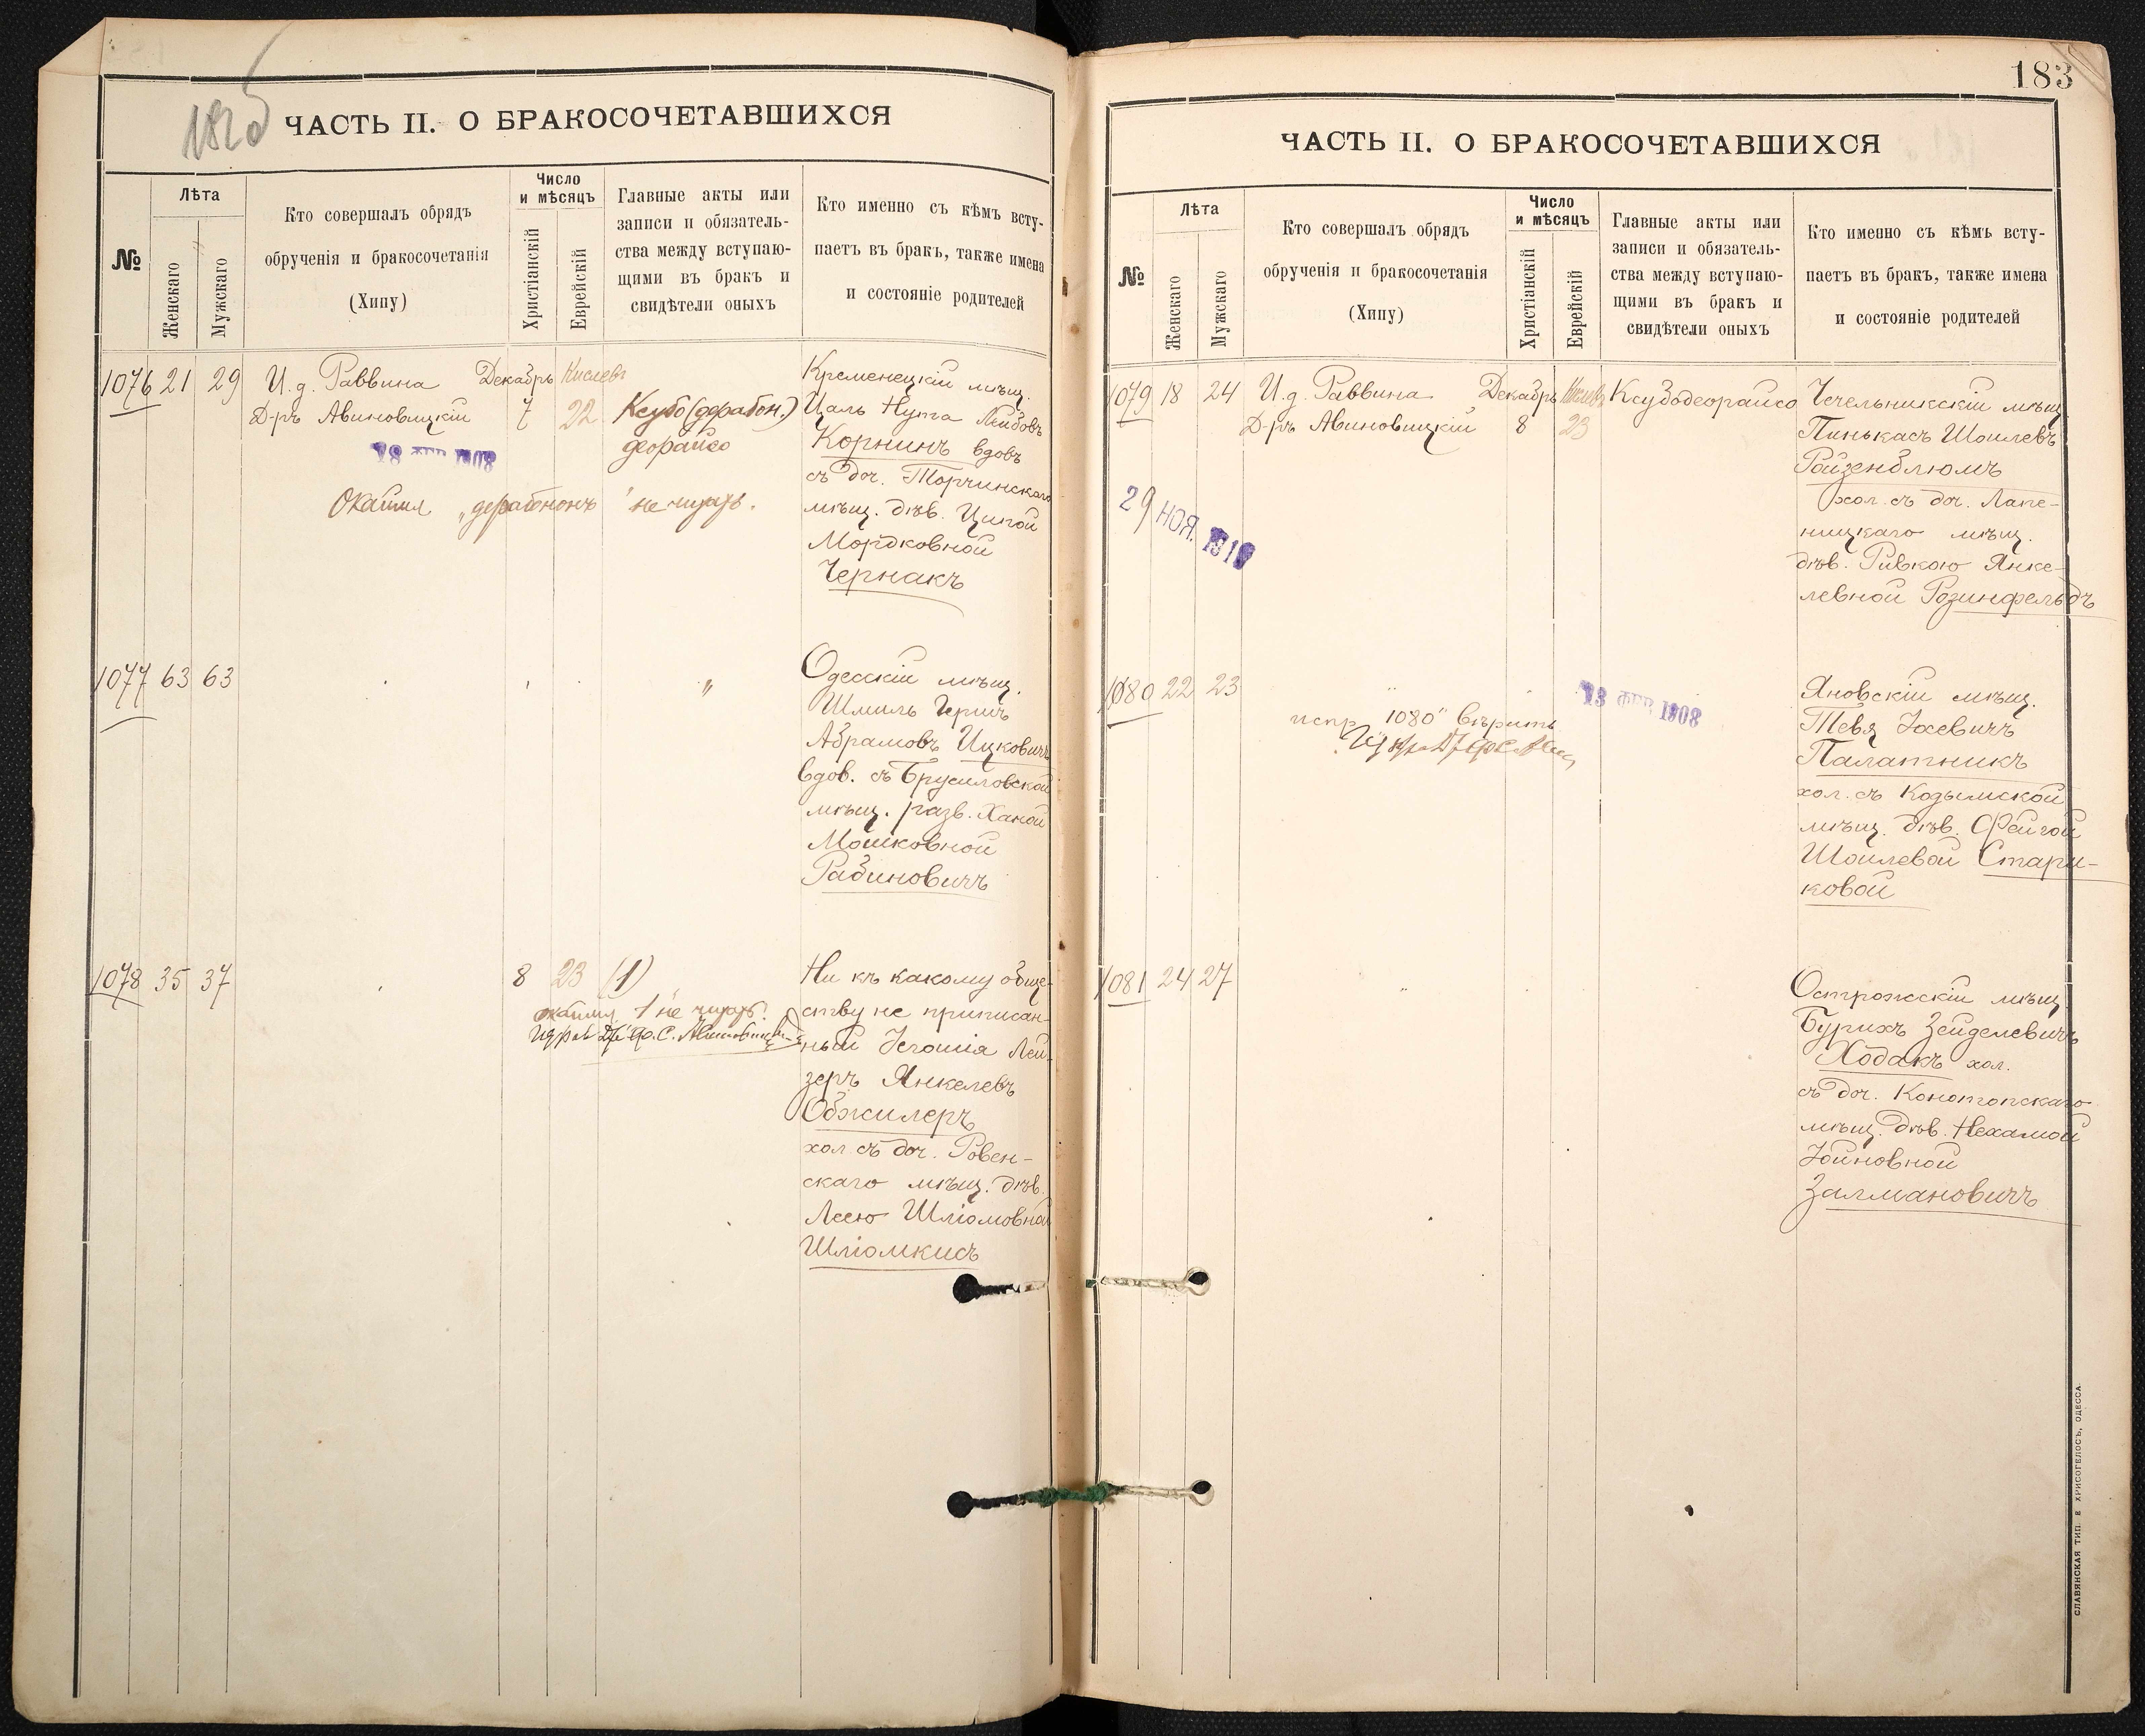 182 б
ЧАСТЬ II. О БРАКОСОЧЕТАВШИХСЯ
№
Лѣта
Женскаго
Мужскаго
Кто совершалъ обрядъ
обрученія и бракосочетанія
(Хипу)
Число
и мѣсяцъ
Христіанскій
Еврейскій
Главные акты или
записи и обязатель-
ства между вступаю-
щими въ бракъ и
свидѣтели оныхъ
Кто именно съ кѣмъ всту-
паетъ въ бракъ, также имена
и состояніе родителей
1076 21 29 И.д. Раввина Декабрь Кислевъ
Д-ръ Авиновицкій 7 22 Ксубо (дерабон.)
деорайсо
Кременецкій мѣщ.
Цаль Нута Лейбовъ
Корнинъ вдовъ
съ доч. Торчинскаго
мѣщ. дѣв. Ципой
Мордковной
Чернакъ
18 ФЕВ 1908
Окаймл „дерабононъ" не читать.
1077 63 63 "
Одесскій мѣщ.
Шмиль Гершъ
Абрамовъ Ицковичъ
вдов. съ Брусиловской
мѣщ. разв. Ханой
Мошковной
Рабиновичъ
1078 35 37 8 23 (1)
окаймл „1" не читать.
Ид рав Д-ръ Ф. С. Авиновицкій
Ни къ какому обще-
ству не приписан-
ный Іегошія Лей-
зеръ Янкелевъ
Обжилеръ
хол. съ доч. Ровен-
скаго мѣщ. дѣв.
Леею Шліомовной
Шліомкисъ
183
ЧАСТЬ II. О БРАКОСОЧЕТАВШИХСЯ
№
Лѣта
Женскаго
Мужскаго
Кто совершалъ обрядъ
обрученія и бракосочетанія
(Хипу)
Число
и мѣсяцъ
Христіанскій
Еврейскій
Главные акты или
записи и обязатель-
ства между вступаю-
щими въ бракъ и
свидѣтели оныхъ
Кто именно съ кѣмъ всту-
паетъ въ бракъ, также имена
и состояніе родителей
1079 18 24 И.д. Раввина Декабрь Кислевъ Ксубодеорайсо
Д-ръ Авиновицкій 8 23
Чечельникскій мѣщ.
Пинькасъ Шоилевъ
Ройзенблюмъ
хол. съ доч. Лапе-
ницкаго мѣщ.
дѣв. Ривкою Янке-
левной Розинфельдъ
29 НОЯ. 191
1080 22 23
испр „1080" вѣрить
13 ФЕВ 1908
Яновскій мѣщ.
Тевя Хаевичъ
Палатникъ
хол. съ Козымской
мѣщ. дѣв. Фейгой
Шоилевой Стари-
ковой
1081 24 27
Острожскій мѣщ.
Бурихъ Зейделевичъ
Ходакъ хол.
съ доч. Конотопскаго
мѣщ. дѣв. Нехамой
Іойновной
Залмановичъ
СЛАВЯНСКАЯ ТИП. Е ХРИСОГЕЛОСЪ, ОДЕССА.